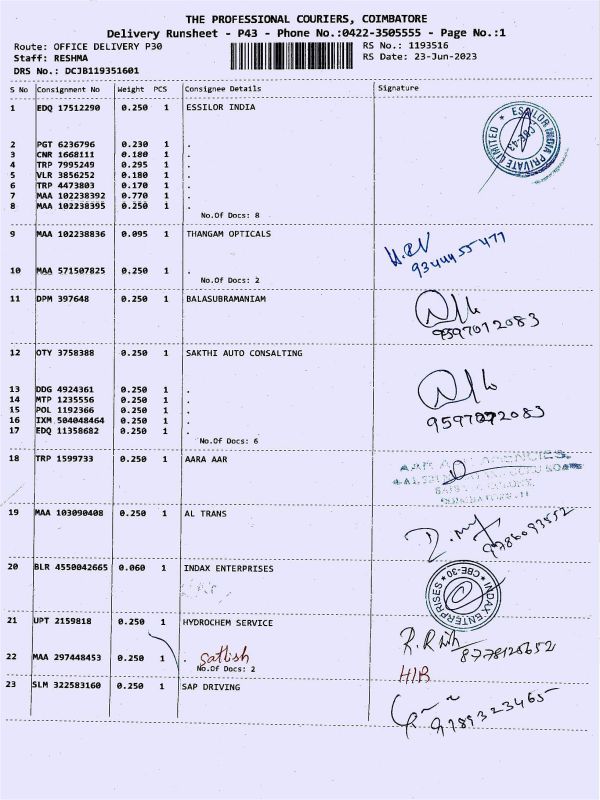 THE PROFESSIONAL COURIERS, COIMBATORE
Delivery Runsheet - P43 - Phone No.:0422-3505555 - Page No.:1
Route: OFFICE DELIVERY P30
RS No.: 1193516
Staff: RESHMA
RS Date: 23-Jun-2023
DRS No.: DCJB119351601
S No Consignment No Weight PCS Consignee Details Signature
1 EDQ 17512290 0.250 1 ESSILOR INDIA
ESSILOR INDIA PRIVATE LIMITED
CBE-43
2 PGT 6236796 0.230 1 .
3 CNR 1668111 0.180 1 .
4 TRP 7995249 0.295 1 .
5 VLR 3856252 0.180 1 .
6 TRP 4473803 0.170 1 .
7 MAA 102238392 0.770 1 .
8 MAA 102238395 0.250 1 .
No.Of Docs: 8
9 MAA 102238836 0.095 1 THANGAM OPTICALS
9344455477
10 MAA 571507825 0.250 1 .
No.Of Docs: 2
11 DPM 397648 0.250 1 BALASUBRAMANIAM
9597072083
12 OTY 3758388 0.250 1 SAKTHI AUTO CONSALTING
13 DDG 4924361 0.250 1 .
14 MTP 1235556 0.250 1 .
15 POL 1192366 0.250 1 .
16 IXM 504048464 0.250 1 .
17 EDQ 11358682 0.250 1 .
9597072083
No.Of Docs: 6
18 TRP 1599733 0.250 1 AARA AAR
AGENCIES.
19 MAA 103090408 0.250 1 AL TRANS
9786093552
20 BLR 4550042665 0.060 1 INDAX ENTERPRISES
INDAX ENTERPRISES
CBE-30
21 UPT 2159818 0.250 1 HYDROCHEM SERVICE
8778128652
22 MAA 297448453 0.250 1 . Satlish
No.Of Docs: 2
H/R
23 SLM 322583160 0.250 1 SAP DRIVING
9789323465